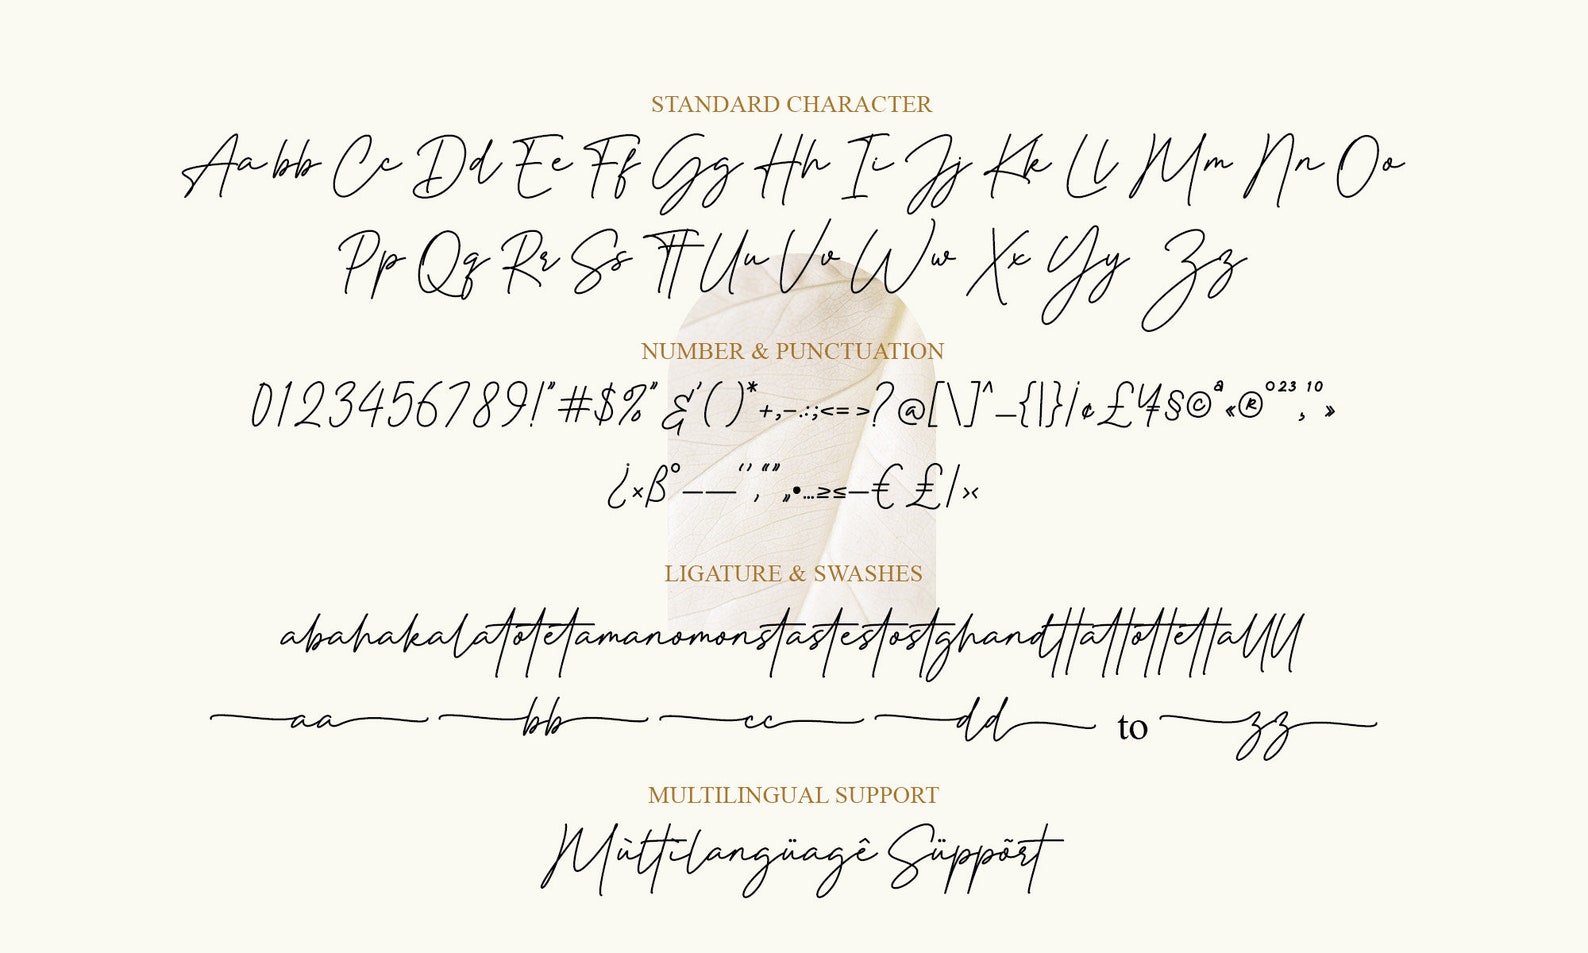 STANDARD CHARACTER
Aa bb Cc Dd Ee Ff Gg Hh Ii Jj Kk Ll Mm Nn Oo
Pp Qq Rr Ss Tt Uu Vv Ww Xx Yy Zz
NUMBER & PUNCTUATION
0123456789!"#$%"&'()*+,-.:;<=>?@[\]^_{|}¡¢£¥§©ª«®°²³,¹º»
¿×ß°–—‘’‚“”„•…≥≤−€ ₤/›‹
LIGATURE & SWASHES
abahakalatotetamanomonstastestostghandttattottettaUU
aa bb cc dd to zz
MULTILINGUAL SUPPORT
Mùltilangüagê Süppõrt